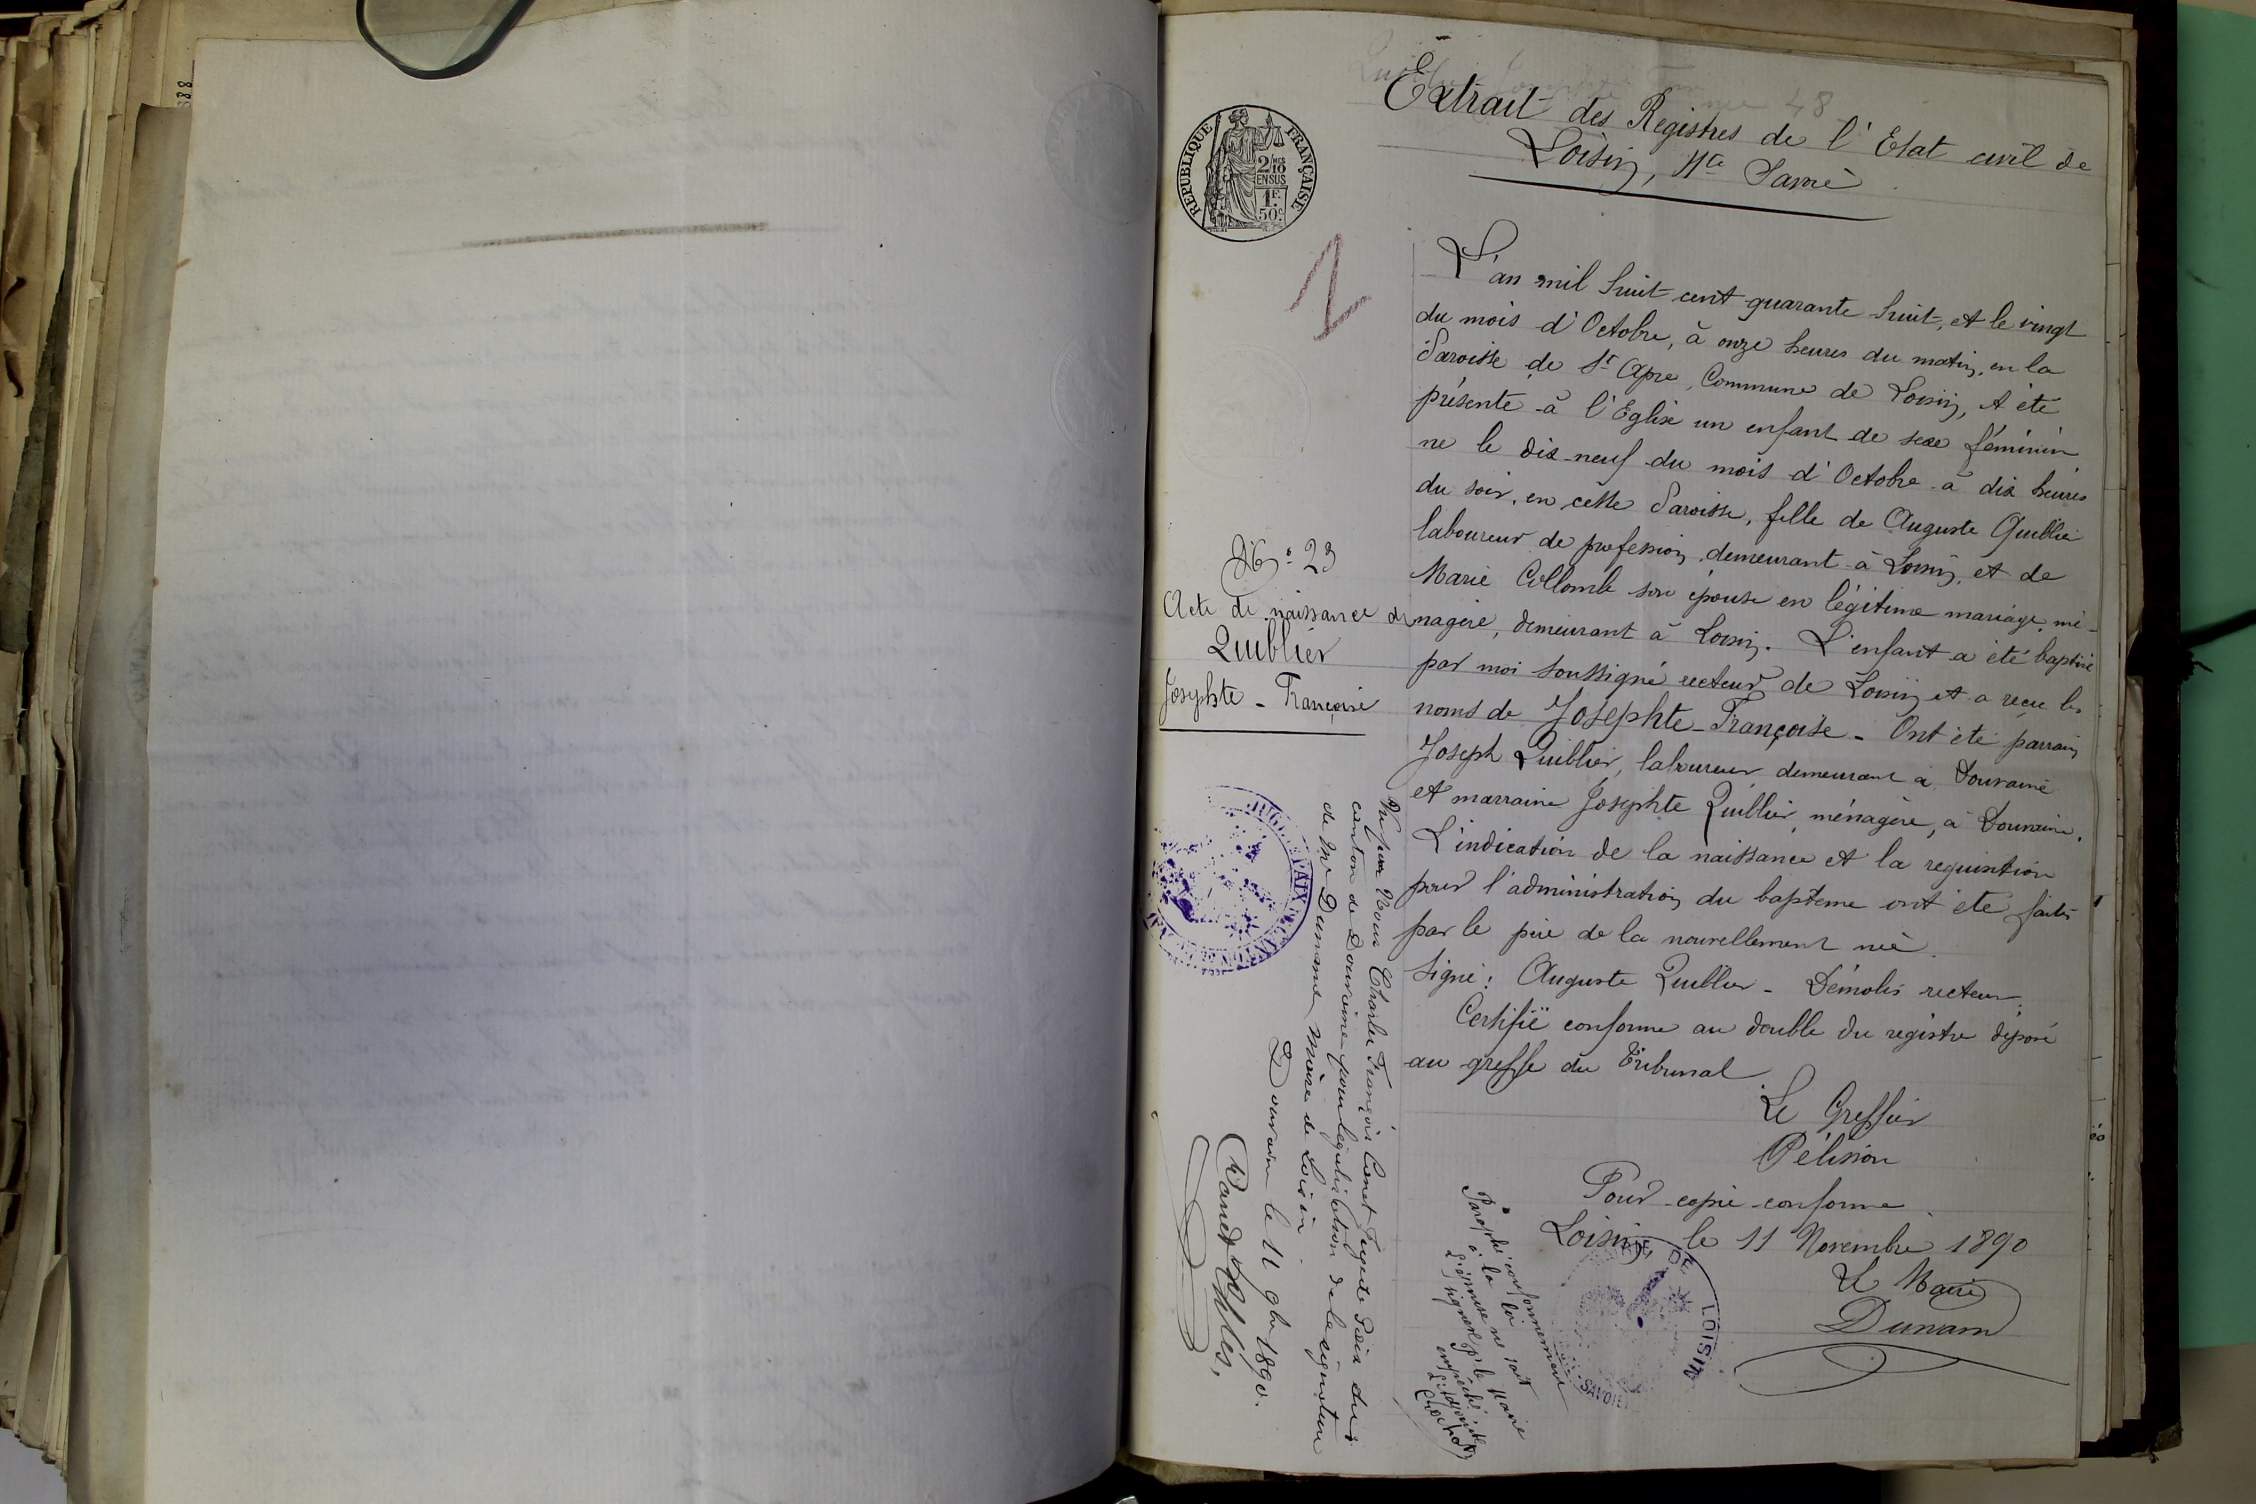 Extrait des Registres de l'Etat civil de
Loisin, Hte Savoie
REPUBLIQUE FRANÇAISE
2/10
EN SUS
1F.
50c
L'an mil huit cent quarante huit, et le vingt
du mois d'Octobre, à onze heures du matin, en la
Paroisse de St Apre, Commune de Loisin, A été
présenté à l'Eglise un enfant de sexe féminin
né le dix-neuf du mois d'Octobre à dix heures
du soir, en cette Paroisse, fille de Auguste Quiblier
laboureur de profession, demeurant à Loisin, et de
Marie Collomb son épouse en légitime mariage, mé-
nagère, demeurant à Loisin. L'enfant a été baptisé
par moi soussigné recteur de Loisin et a reçu les
noms de Josephte-Françoise. Ont été parrain
Joseph Quiblier, laboureur demeurant à Douvaine
et marraine Josephte Quiblier, ménagère, à Douvaine.
L'indication de la naissance et la requisition
pour l'administration du baptême ont été faites
par le père de la nouvellement née.
Signé: Auguste Quiblier - Démolis recteur.
Certifié conforme au double du registre déposé
au greffe du Tribunal.
Le Greffier
Pélission
Pour copie conforme
Loisin, le 11 Novembre 1890
Le Maire
Dunam
No 23
Acte de naissance de
Quiblier
Josephte - Françoise
Vu par Nous Charles François Canet Juge de Paix du
canton de Douvaine pour légalisation de la signature
de Mr Dunand Maire de Loisin.
Douvaine le 11 9bre 1890.
Canet Chles,
Paraphé conformément
à la loi
L'épouse ne sait
signer p. le Maire
empêché
l'adjoint
DE LOISIN
SAVOIE
2